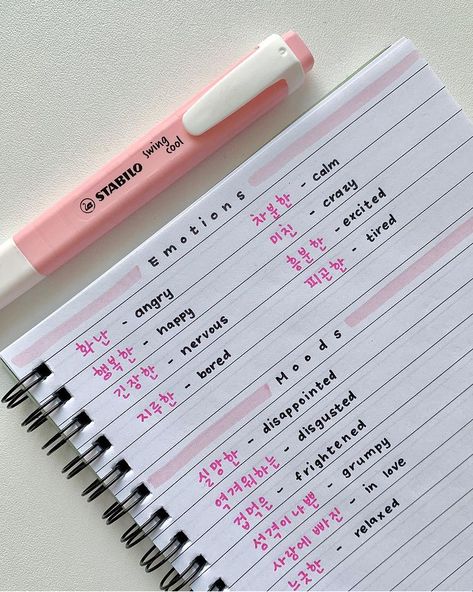 STABILO swing cool
Emotions
화난 - angry
행복한 - happy
긴장한 - nervous
지루한 - bored
차분한 - calm
미친 - crazy
흥분한 - excited
피곤한 - tired
Moods
실망한 - disappointed
역겨워하는 - disgusted
겁먹은 - frightened
성격이나쁜 - grumpy
사랑에 빠진 - in love
느긋한 - relaxed